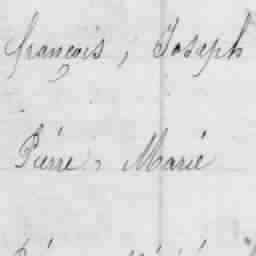 françois, Joseph
Pierre, Marie